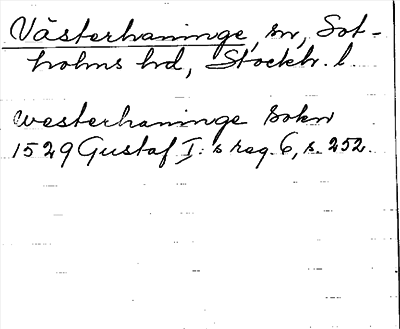 Västerhaninge, sn, Sot-
holms hd, Stockh. l.
westerhaninge Sokn
1529 Gustaf I:s reg. 6, s. 252.